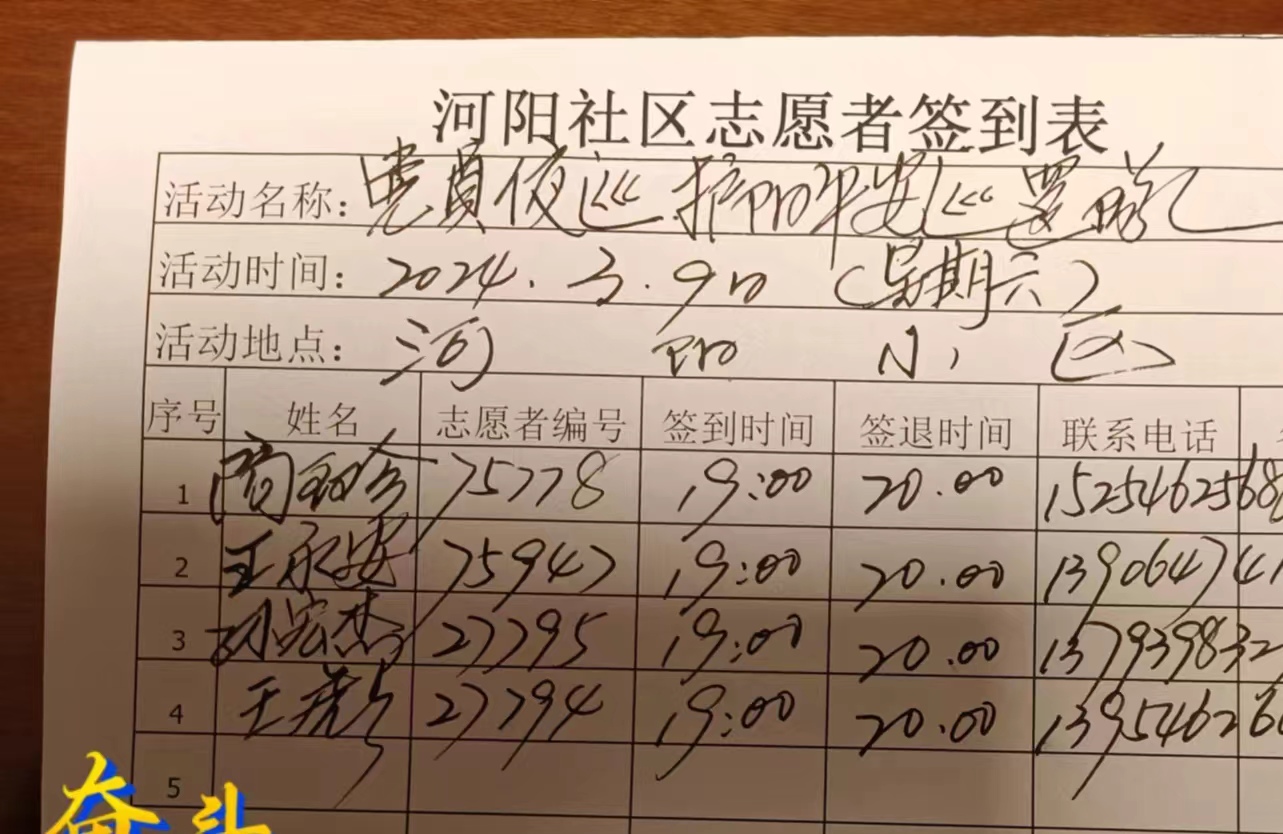 河阳社区志愿者签到表
活动名称：党员夜巡 护阳平安巡逻
活动时间：2024.3.9日（星期六）
活动地点：河阳小区
序号 姓名 志愿者编号 签到时间 签退时间 联系电话
1 75778 19:00 20.00 1525462568
2 王永安 75947 19:00 20.00 139064741
3 刘宏杰 27795 19:00 20.00 137939832
4 王 27794 19:00 20.00 139546266
5
奋斗